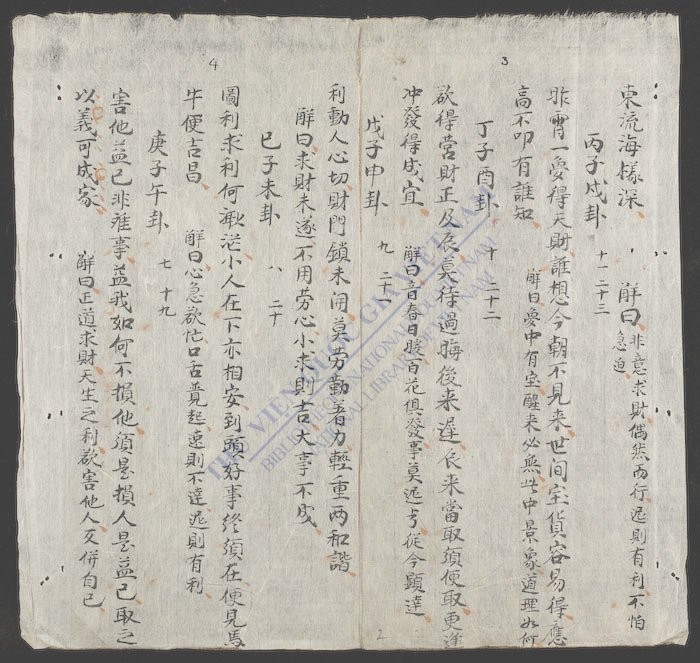 3
東流海樣深
解曰非意求財偶然而行迟則有利不怕
急迫
丙子戌卦
十一 二十三
昨宵一夢得天財誰想今朝不見来世间宝貨容易得應
高不叩有誰知
解曰夢中有宝醒来必無此中景象道理如何
丁子酉卦
十 二十二
欲得营財正及辰莫待過晦後来遲辰来當取須便取更逢
冲發得成宜
解曰音春日暖百花俱發事莫迟亏従今顕達
戊子申卦
九 二十一
利動人心切財門鎖未開莫劳勤着力輕重两和諧
解曰求財未遂不用劳心小求則吉大事不成
2
4
已子未卦
八 二十
圖利求利何敢茫小人在下亦相安到頭好事終須在便見馬
牛便吉昌
解曰心急欲忙口舌竟起速則不達迟則有利
庚子午卦
七 十九
害他益己非难事益我如何不損他須是損人是益己取之
以義可成家
解曰正道求財天生之利欲害他人又併自已
THƯ VIỆN QUỐC GIA VIỆT NAM
BIBLIOTHÈQUE NATIONALE DU VIETNAM
NATIONAL LIBRARY OF VIETNAM